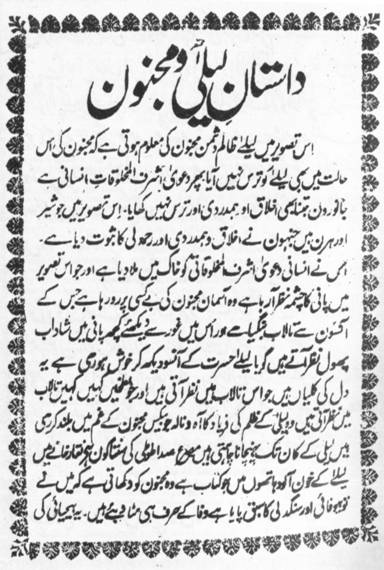 داستانِ لیلیٰ و مجنون
اِس تصویر میں لیلےٰ ظالم دشمن مجنون کی معلوم ہوتی ہے کہ مجنون کی اُس
حالت میں بھی لیلےٰ کو ترس نہیں آیا پھر دعویٰ اشرف المخلوقات انسانی ہے
جانورون جتنا بھی اخلاق اور ہمدردی اور ترس نہیں کھایا۔ اِس تصویر میں جو شیر
اور ہرن ہیں جنہوں نے اخلاق و ہمدردی اور رحمدلی کا ثبوت دیا ہے۔
اُس نے انسانی دعویٰ اشرف المخلوقاتی کو خاک میں ملا دیا ہے اور جو اس تصویر
میں پانی کا چشمہ نظر آرہا ہے وہ آسمان مجنون کی بے کسی پر رو رہا ہے جس کے
آنسوں سے تالاب بنگیا ہے اور اُس میں غور سے دیکھئے کچھ پانی میں شاداب
پھول نظر آتے ہیں گویا لیلےٰ حسرت کے آنسو دیکھ کر خوش ہو رہی ہے یہ
دل کی کلیاں ہیں جو اس تالاب میں نظر آتی ہیں اور جو بطخیں کہیں کہیں تالاب
میں نظر آتی ہیں وہ لیلیٰ کے ظلم کی فریاد کا آہ و نالہ جو بیکس مجنون کے غم میں بلند کر رہی
ہیں لیلیٰ کے کان تک پہنچانا چاہتی ہیں مگر صدا طوطی کی سنتا کون ہے نقار خانے میں
لیلےٰ کے خون آلود ہاتھوں میں جو کتاب ہے وہ مجنون کو دکھاتی ہے کہ میں نے
تو بیوفائی اور سنگدلی کا سبق پایا ہے وفا کے حرف ہی مٹا دیئے ہیں۔ یہ بیحیائی کی